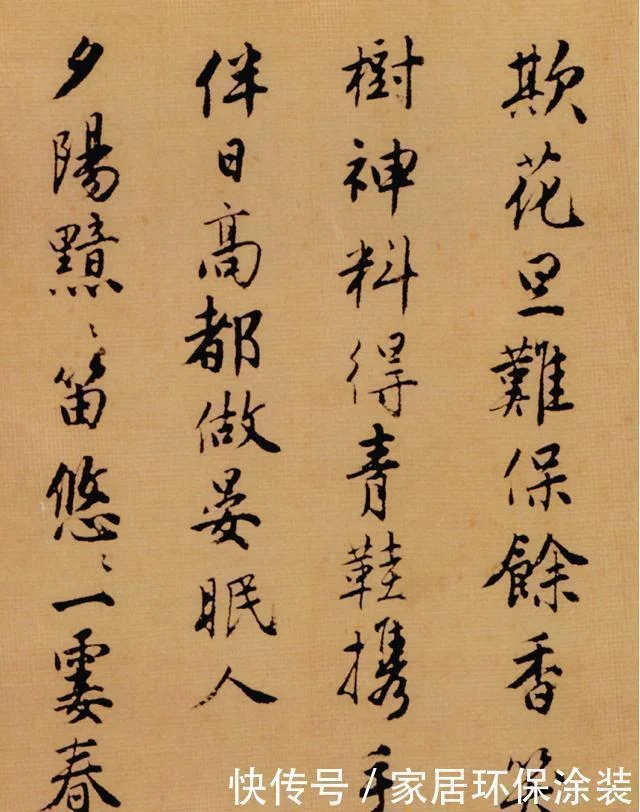 欺花旦難保餘香笑
樹神料得青鞋携手
伴日高都做晏眠人
夕陽黯〻笛悠〻一霎春
快传号/家居环保涂装